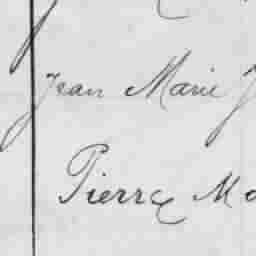 Jean Marie J
Pierre Ma